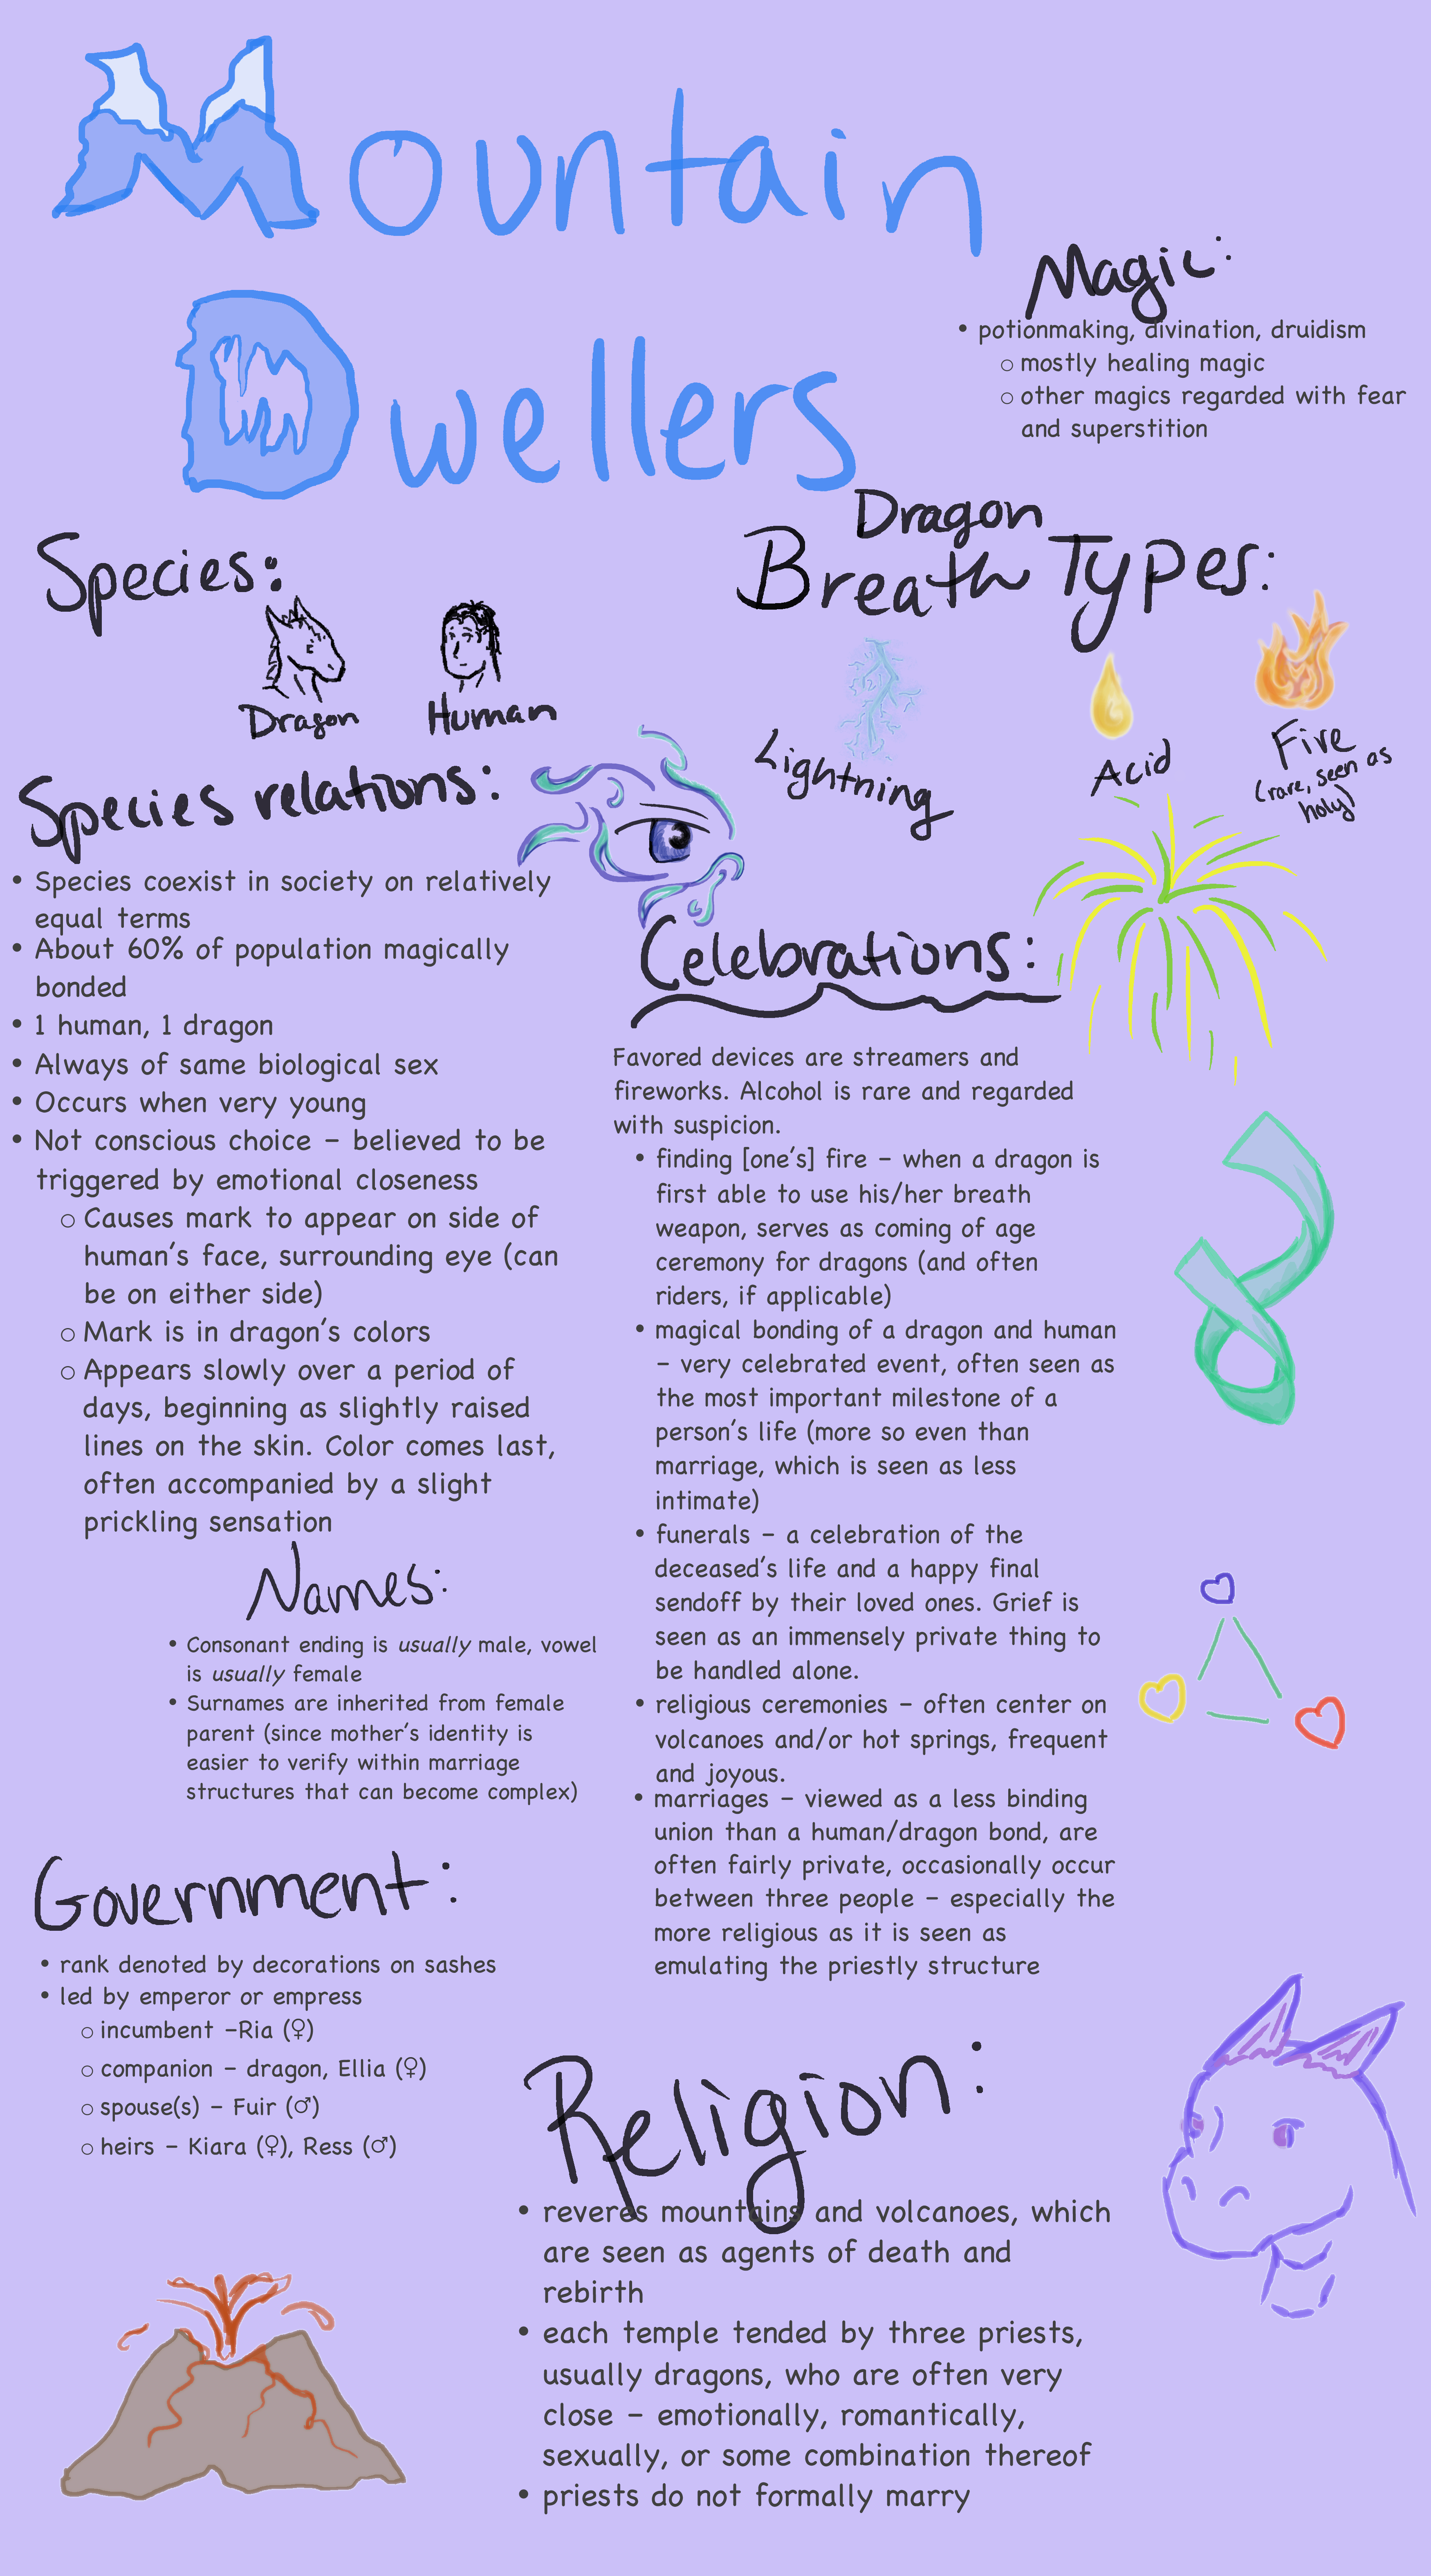 Mountain
Dwellers
Magic:
• potionmaking, divination, druidism
○ mostly healing magic
○ other magics regarded with fear
and superstition
Species:
Dragon
Human
Dragon
Breath Types:
Lightning
Acid
Fire
(rare, seen as
holy)
Species relations:
• Species coexist in society on relatively
equal terms
• About 60% of population magically
bonded
• 1 human, 1 dragon
• Always of same biological sex
• Occurs when very young
• Not conscious choice – believed to be
triggered by emotional closeness
○ Causes mark to appear on side of
human's face, surrounding eye (can
be on either side)
○ Mark is in dragon's colors
○ Appears slowly over a period of
days, beginning as slightly raised
lines on the skin. Color comes last,
often accompanied by a slight
prickling sensation
Names:
• Consonant ending is usually male, vowel
is usually female
• Surnames are inherited from female
parent (since mother's identity is
easier to verify within marriage
structures that can become complex)
Government:
• rank denoted by decorations on sashes
• led by emperor or empress
○ incumbent –Ria (♀)
○ companion – dragon, Ellia (♀)
○ spouse(s) – Fuir (♂)
○ heirs – Kiara (♀), Ress (♂)
Celebrations:
Favored devices are streamers and
fireworks. Alcohol is rare and regarded
with suspicion.
• finding [one's] fire – when a dragon is
first able to use his/her breath
weapon, serves as coming of age
ceremony for dragons (and often
riders, if applicable)
• magical bonding of a dragon and human
– very celebrated event, often seen as
the most important milestone of a
person's life (more so even than
marriage, which is seen as less
intimate)
• funerals – a celebration of the
deceased's life and a happy final
sendoff by their loved ones. Grief is
seen as an immensely private thing to
be handled alone.
• religious ceremonies – often center on
volcanoes and/or hot springs, frequent
and joyous.
• marriages – viewed as a less binding
union than a human/dragon bond, are
often fairly private, occasionally occur
between three people – especially the
more religious as it is seen as
emulating the priestly structure
Religion:
• reveres mountains and volcanoes, which
are seen as agents of death and
rebirth
• each temple tended by three priests,
usually dragons, who are often very
close – emotionally, romantically,
sexually, or some combination thereof
• priests do not formally marry